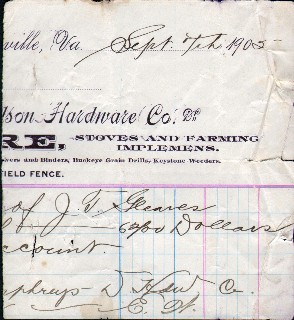 ville, Va. Sept. 7th 1905
dson Hardware Co. Dr
RE, STOVES AND FARMING
IMPLEMENS.
and Binders, Buckeye Grain Drills, Keystone Weeders.
FIELD FENCE.
of J. T.
Dollars
ccount.
Hdw Co.